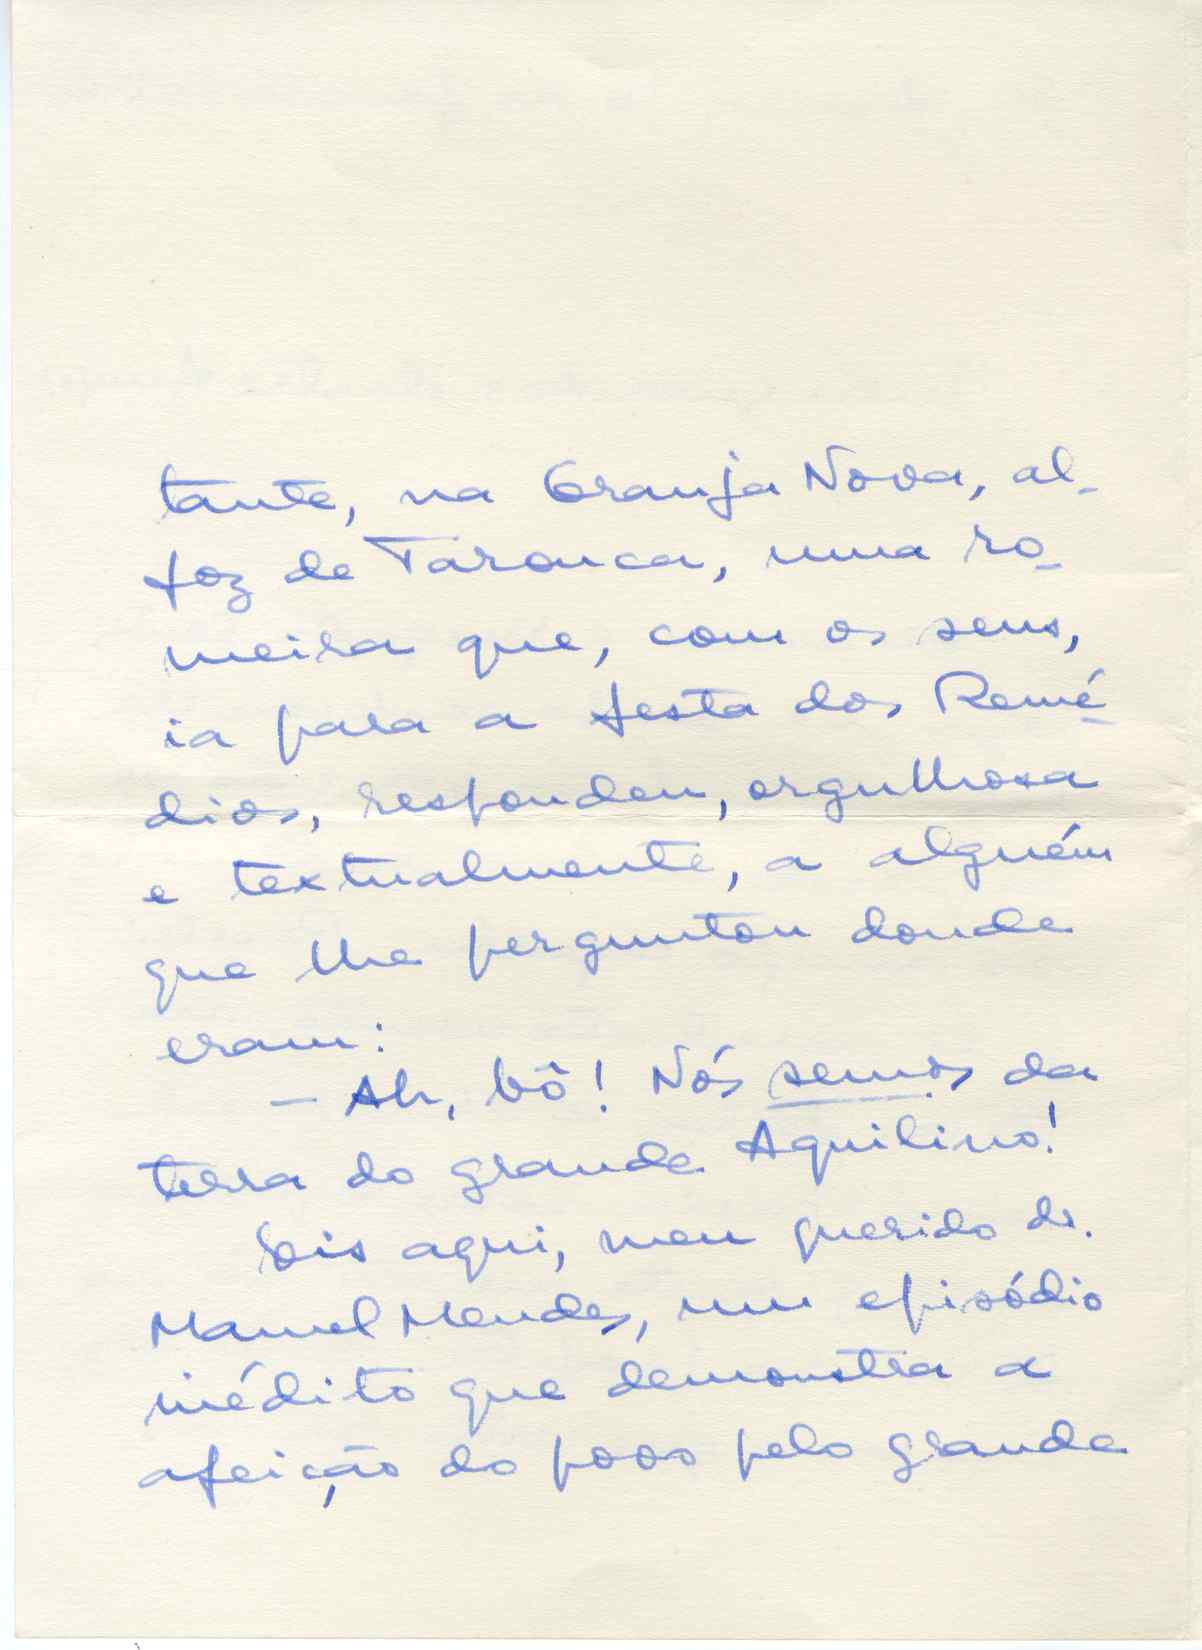 tante, na Granja Nova, al-
foz de Tarouca, uma ro-
meira que, com os seus,
ia para a festa dos Remé-
dios, respondeu, orgulhosa
e textualmente, a alguém
que lhe perguntou donde
eram:
— Ah, bô! Nós semos da
terra do grande Aquilino!
Eis aqui, meu querido dr.
Manuel Mendes, um episódio
inédito que demonstra a
afeição do povo pelo grande